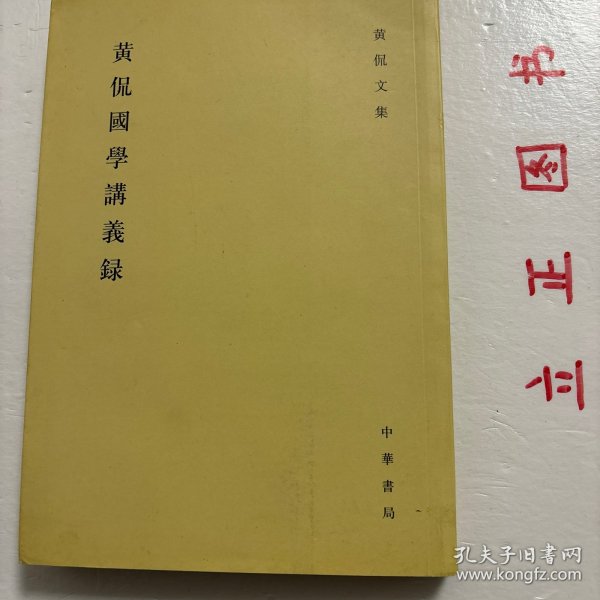 黄侃國學講義録
黄侃文集
中華書局
立正图书
孔夫子旧书网
www.kongfz.com